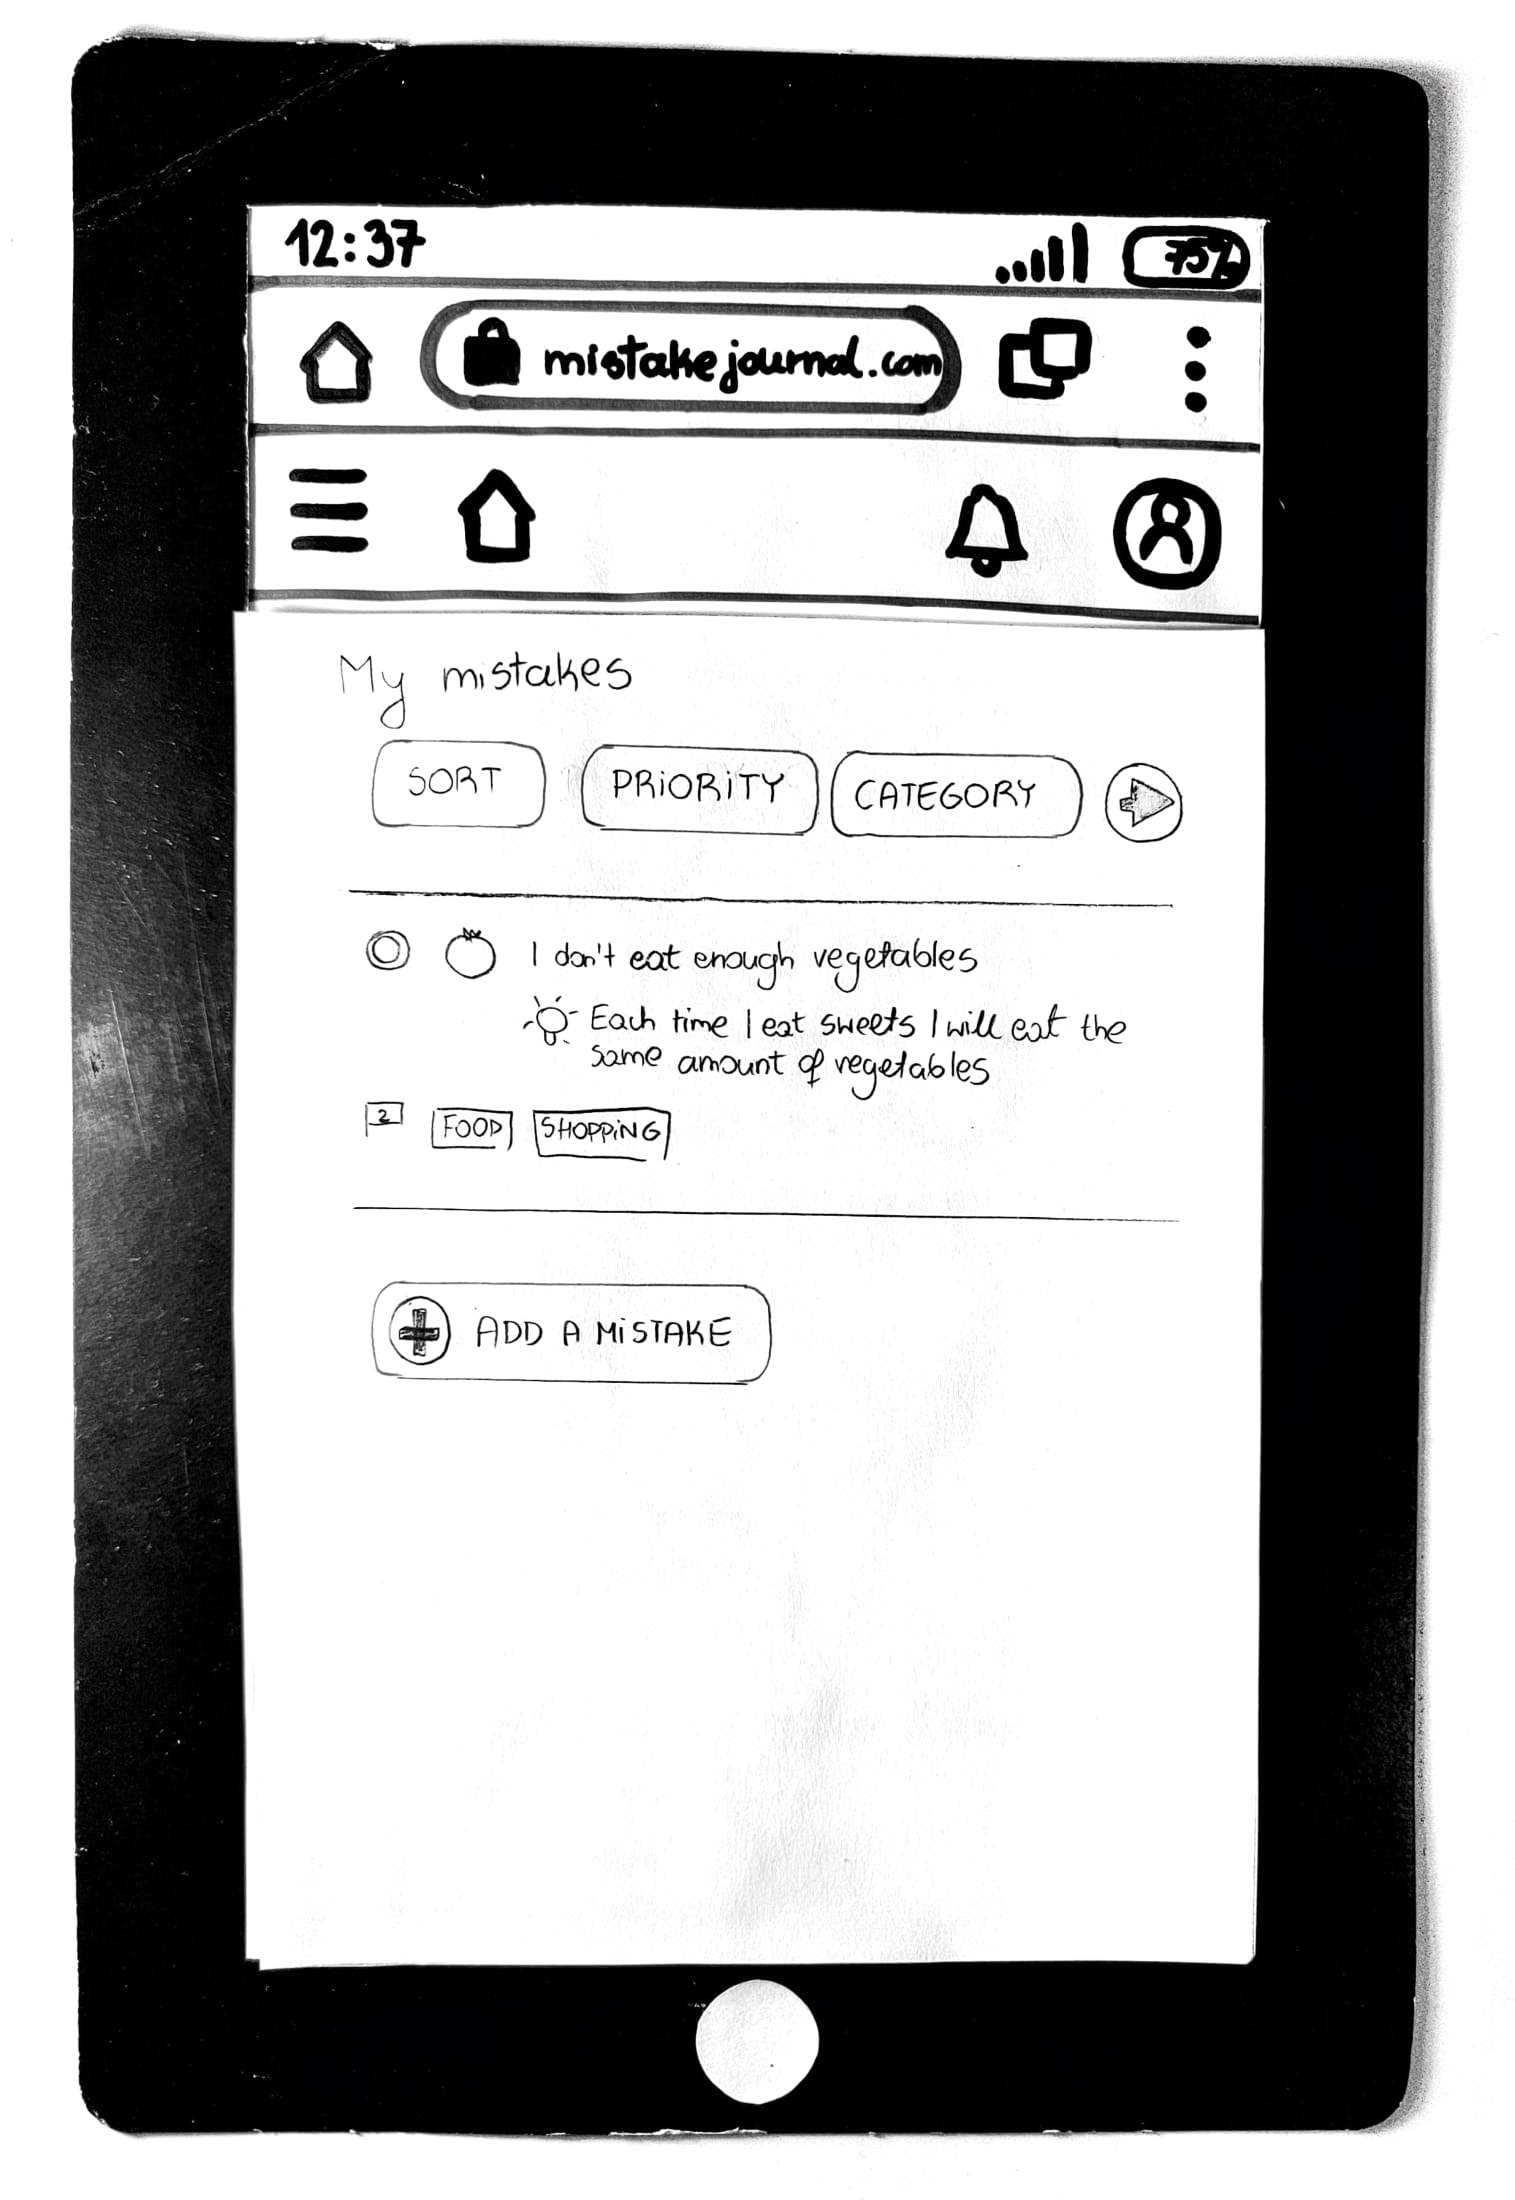 12:37 75%
mistakejournal.com
My mistakes
SORT PRIORITY CATEGORY
I don't eat enough vegetables
Each time I eat sweets I will eat the
same amount of vegetables
2 FOOD SHOPPING
ADD A MISTAKE